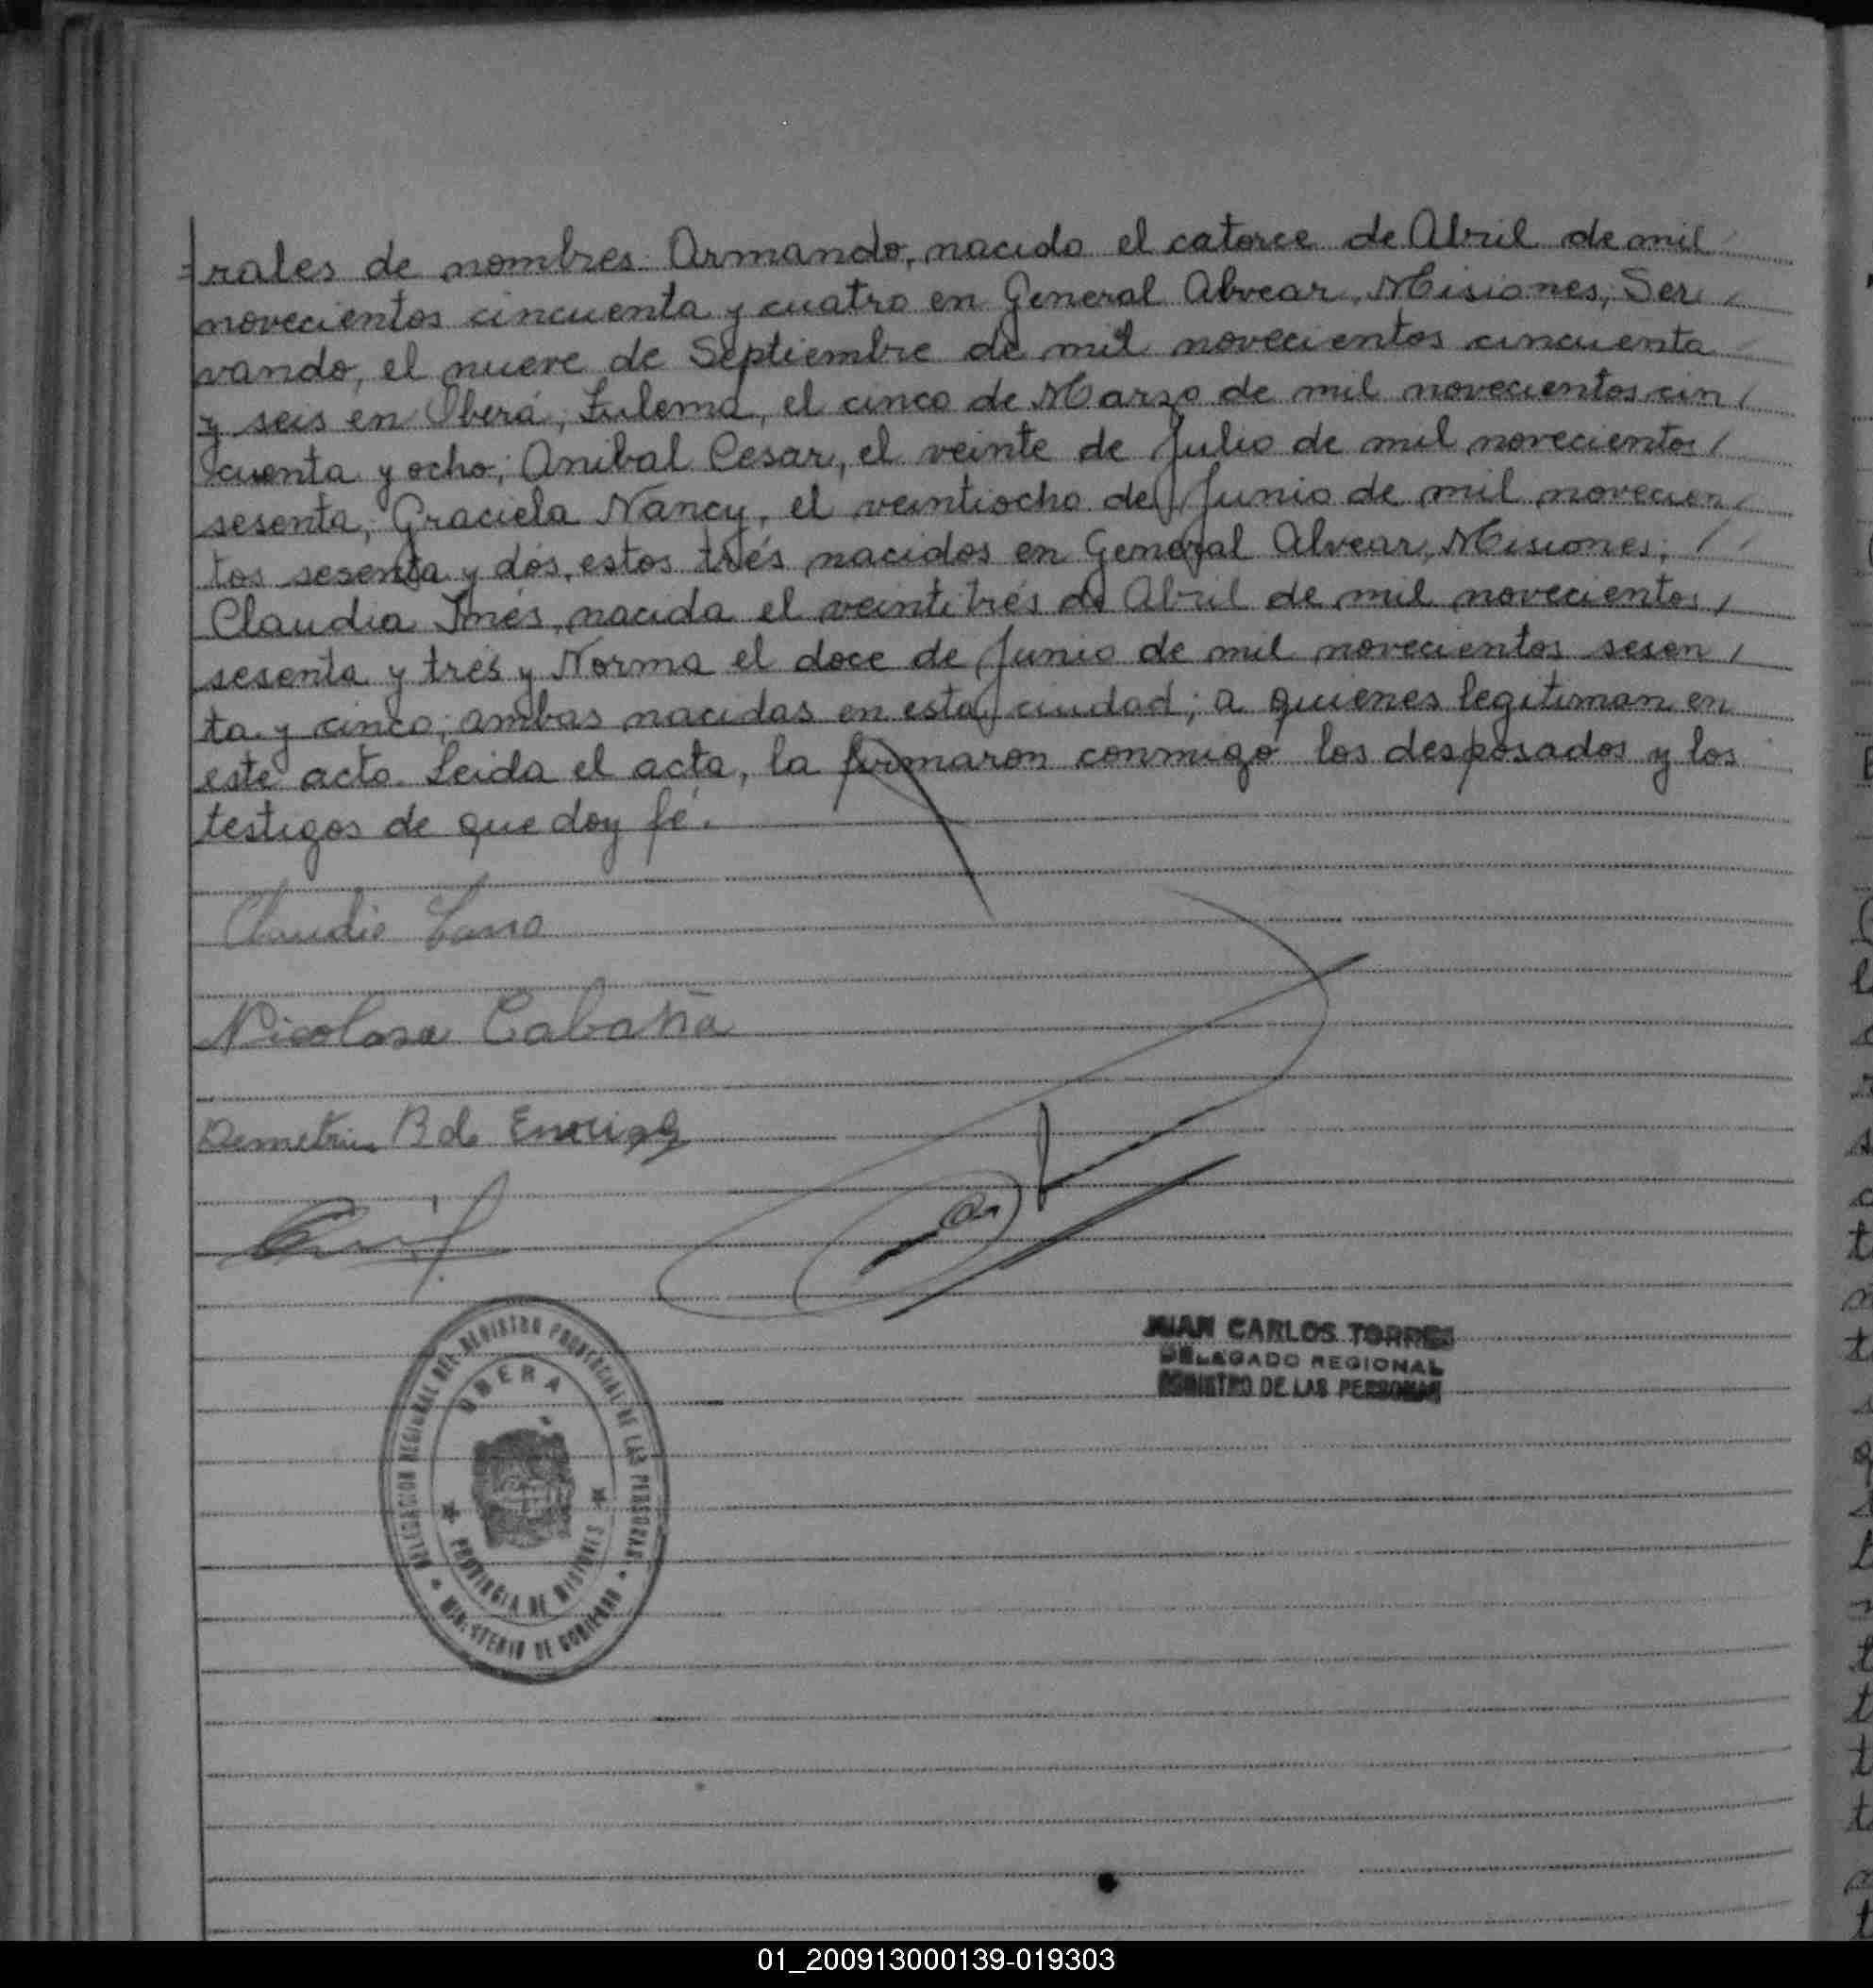 =rales de nombres: Armando, nacido el catorce de Abril de mil
novecientos cincuenta y cuatro en General Alvear, Misiones; Ser /
vando, el nueve de Septiembre de mil novecientos cincuenta
y seis en Oberá; Zulema, el cinco de Marzo de mil novecientos cin /
cuenta y ocho; Anibal Cesar, el veinte de Julio de mil novecientos /
sesenta; Graciela Nancy, el veintiocho de Junio de mil novecien /
tos sesenta y dós, estos trés nacidos en General Alvear, Misiones; / /
Claudia Inés, nacida el veintitrés de Abril de mil novecientos /
sesenta y trés y Norma el doce de Junio de mil novecientos sesen /
ta y cinco; ambas nacidas en esta ciudad; a quienes legitiman en
este acto. Leida el acta, la firmaron conmigo los desposados y los
testigos de que doy fé.
Claudio
Nicolasa Cabaña
B de
JUAN CARLOS TORRES
DELEGADO REGIONAL
REGISTRO DE LAS PERSONAS
DELEGACION REGIONAL DEL REGISTRO PROVINCIAL DE LAS PERSONAS
OBERA
PROVINCIA DE MISIONES
MINISTERIO DE GOBIERNO
01_200913000139-019303